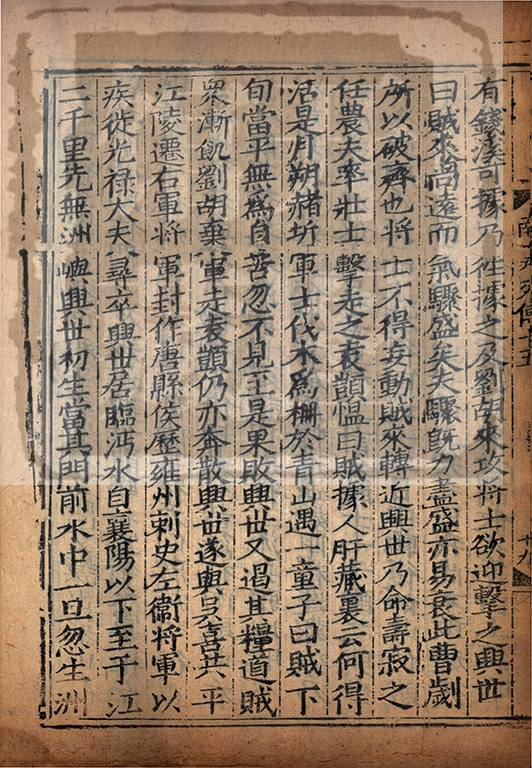 有錢溪可據乃往據之及劉胡來攻將士欲迎擊之興世
曰賊來尚遠而氣驟盛矣夫驟既力盡盛亦易衰此曹劌
所以破齊也將士不得妄動賊來轉近興世乃命壽寂之
任農夫率壯士擊走之袁顗慍曰賊據人肝藏裏云何得
活是月朔赭圻軍士伐木爲柵於青山遇一童子曰賊下
旬當平無爲自苦忽不見至是果敗興世又遏其糧道賊
衆漸飢劉胡棄軍走袁顗仍亦奔散興世遂與吳喜共平
江陵遷右軍將軍封作唐縣侯歷雍州刺史左衛將軍以
疾徙光禄大夫尋卒興世居臨沔水自襄陽以下至于江
二千里先無洲嶼興世初生當其門前水中一旦忽生洲